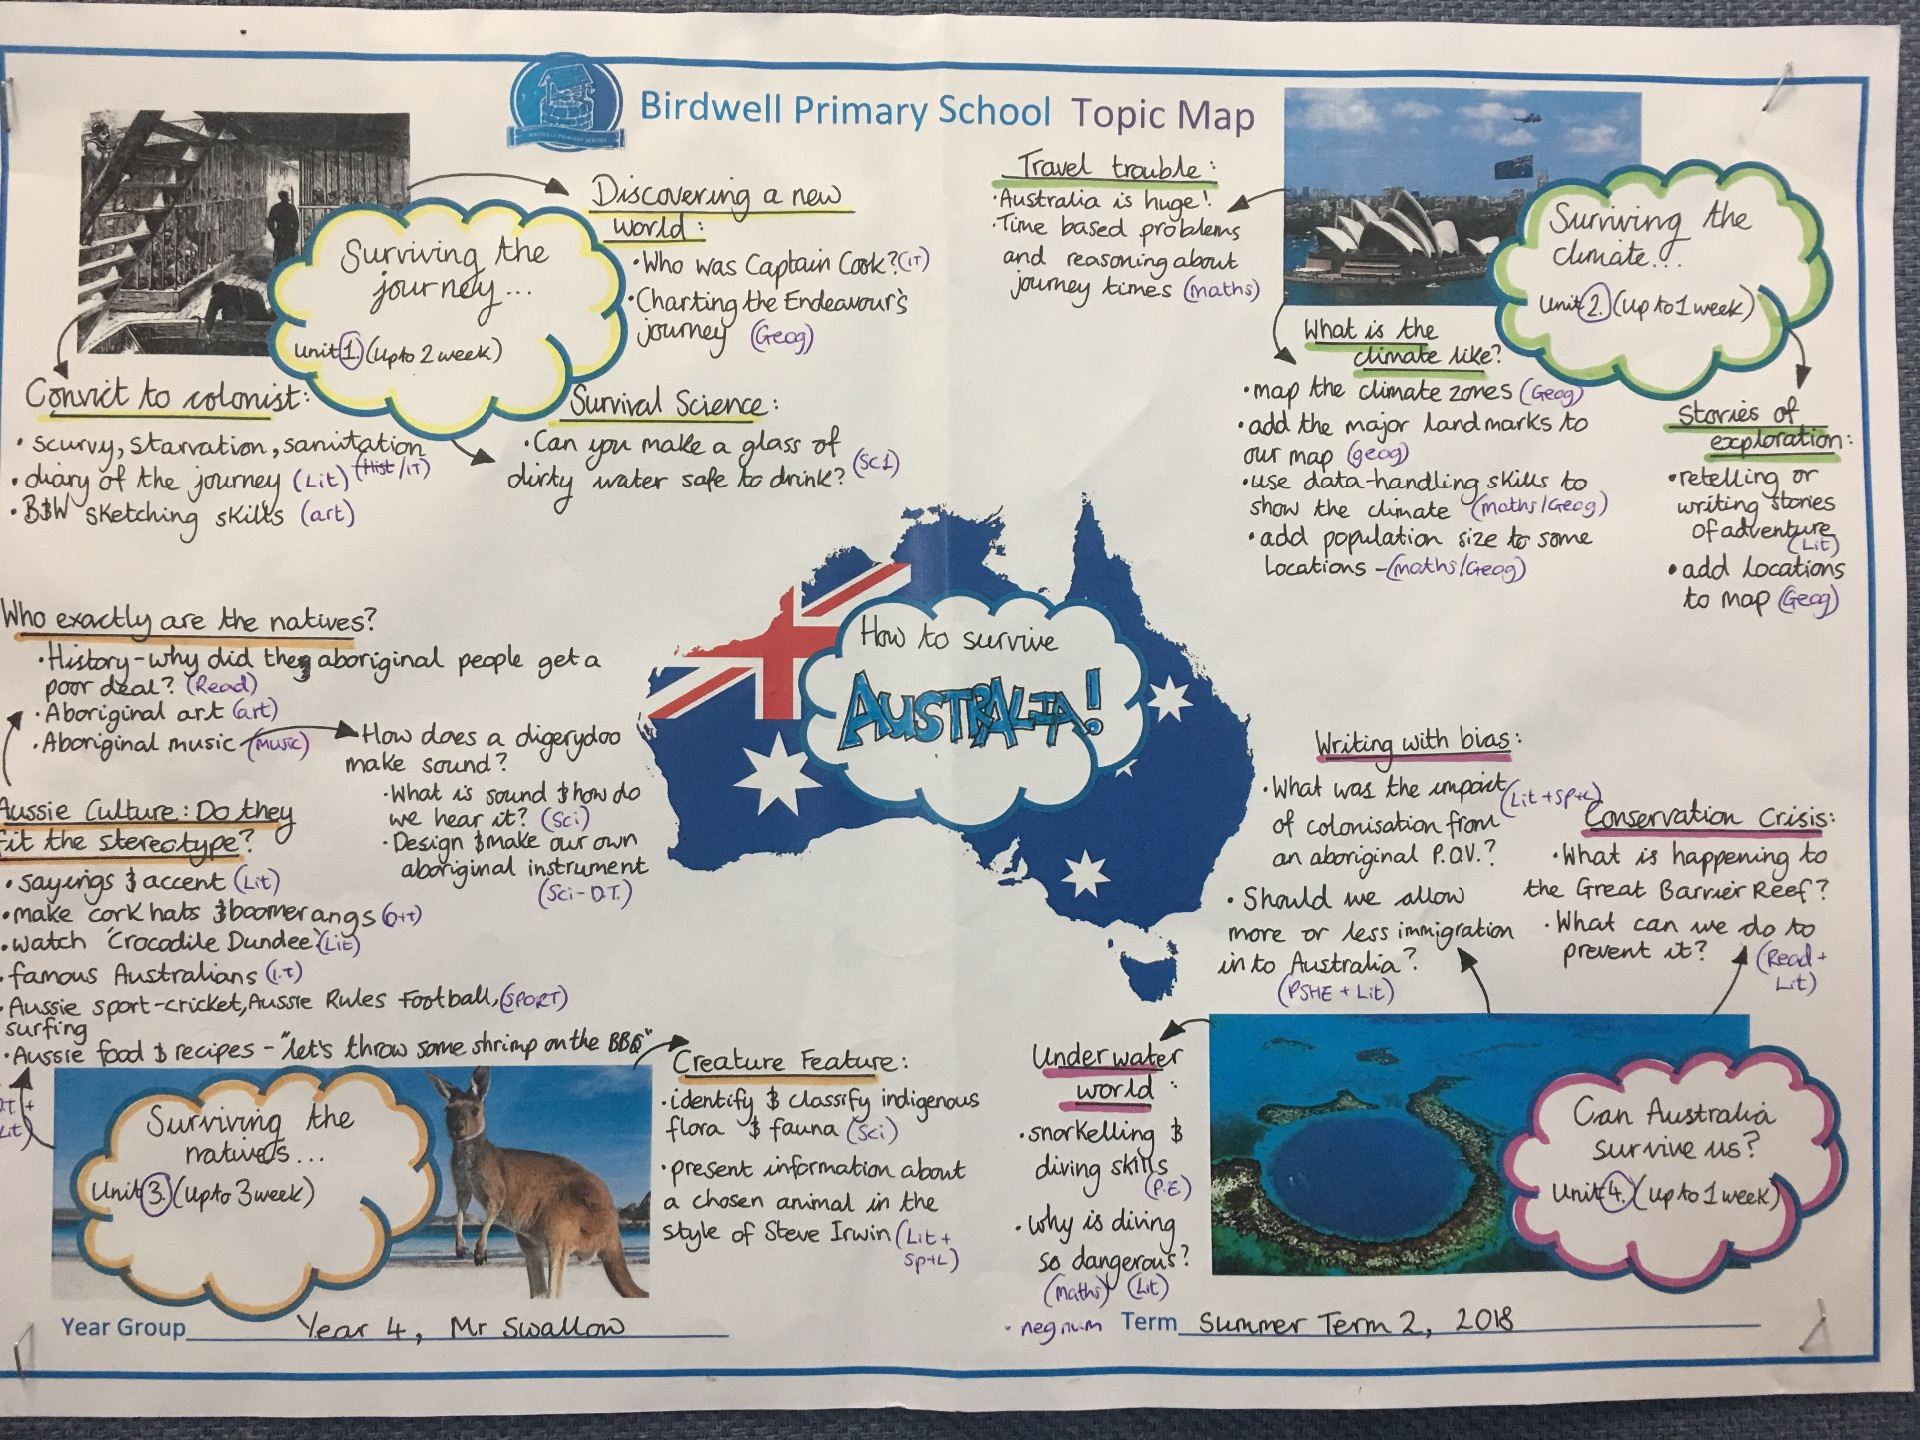 Birdwell Primary School Topic Map
BIRDWELL PRIMARY SCHOOL
Surviving the
journey...
Unit 1. (Up to 2 week)
Discovering a new
world:
• Who was Captain Cook? (IT)
• Charting the Endeavour's
journey (Geog)
Convict to colonist:
• scurvy, starvation, sanitation
(Hist/IT)
• diary of the journey (Lit)
• B&W sketching skills (art)
Survival Science:
• Can you make a glass of
dirty water safe to drink? (Sc1)
Travel trouble:
• Australia is huge!
• Time based problems
and reasoning about
journey times (maths)
Surviving the
climate...
Unit 2. (Up to 1 week)
What is the
climate like?
• map the climate zones (Geog)
• add the major landmarks to
our map (geog)
• use data-handling skills to
show the climate (maths/Geog)
• add population size to some
locations - (maths/Geog)
Stories of
exploration:
• retelling or
writing stories
of adventure
(Lit)
• add locations
to map (Geog)
How to survive
AUSTRALIA!
Who exactly are the natives?
• History - why did they aboriginal people get a
poor deal? (Read)
• Aboriginal art (art)
• Aboriginal music (music)
How does a digerydoo
make sound?
• What is sound & how do
we hear it? (Sci)
• Design & make our own
aboriginal instrument
(Sci-D.T.)
Aussie Culture: Do they
fit the stereotype?
• sayings & accent (Lit)
• make cork hats & boomerangs (D+t)
• watch 'Crocodile Dundee' (Lit)
• famous Australians (I.T)
• Aussie sport-cricket, Aussie Rules Football, (SPORT)
surfing
• Aussie food & recipes - "let's throw some shrimp on the BBQ"
D.T. +
Lit)
Surviving the
natives...
Unit 3. (Up to 3 week)
Creature Feature:
• identify & classify indigenous
flora & fauna (Sci)
• present information about
a chosen animal in the
style of Steve Irwin (Lit +
Sp+L)
Writing with bias:
• What was the impact (Lit + Sp+L)
of colonisation from
an aboriginal P.O.V.?
• Should we allow
more or less immigration
in to Australia?
(PSHE + Lit)
Conservation Crisis:
• What is happening to
the Great Barrier Reef?
• What can we do to
prevent it? (Read +
Lit)
Under water
world:
• snorkelling &
diving skills
(P.E)
• why is diving
so dangerous?
(Maths) (Lit)
• neg num
Can Australia
survive us?
Unit 4. (Up to 1 week)
Year Group Year 4, Mr Swallow
Term Summer Term 2, 2018